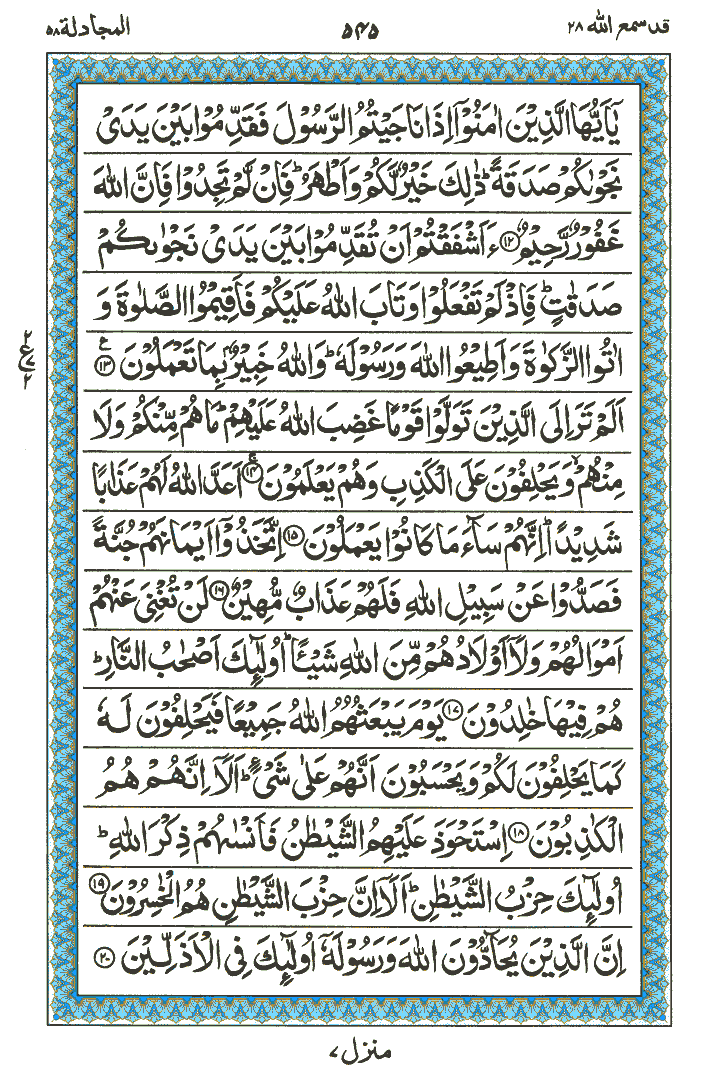 قد سمع الله ٢٨
٥٤٥
المجادلة ٥٨
يٰٓاَيُّهَا الَّذِيْنَ اٰمَنُوْٓا اِذَا نَاجَيْتُمُ الرَّسُوْلَ فَقَدِّمُوْا بَيْنَ يَدَىْ
نَجْوٰىكُمْ صَدَقَةً ؕ ذٰلِكَ خَيْرٌ لَّكُمْ وَاَطْهَرُ ؕ فَاِنْ لَّمْ تَجِدُوْا فَاِنَّ اللّٰهَ
غَفُوْرٌ رَّحِيْمٌ ۝۱۲ ءَاَشْفَقْتُمْ اَنْ تُقَدِّمُوْا بَيْنَ يَدَىْ نَجْوٰىكُمْ
صَدَقٰتٍ ؕ فَاِذْ لَمْ تَفْعَلُوْا وَتَابَ اللّٰهُ عَلَيْكُمْ فَاَقِيْمُوا الصَّلٰوةَ وَ
اٰتُوا الزَّكٰوةَ وَاَطِيْعُوا اللّٰهَ وَرَسُوْلَهٗ ؕ وَاللّٰهُ خَبِيْرٌۢ بِمَا تَعْمَلُوْنَ ۝۱۳ ع
٢ ع ٧ ٢
اَلَمْ تَرَ اِلَى الَّذِيْنَ تَوَلَّوْا قَوْمًا غَضِبَ اللّٰهُ عَلَيْهِمْ ؕ مَا هُمْ مِّنْكُمْ وَلَا
مِنْهُمْ ۙ وَيَحْلِفُوْنَ عَلَى الْكَذِبِ وَهُمْ يَعْلَمُوْنَ ۝۱۴ اَعَدَّ اللّٰهُ لَهُمْ عَذَابًا
شَدِيْدًا ؕ اِنَّهُمْ سَآءَ مَا كَانُوْا يَعْمَلُوْنَ ۝۱۵ اِتَّخَذُوْٓا اَيْمَانَهُمْ جُنَّةً
فَصَدُّوْا عَنْ سَبِيْلِ اللّٰهِ فَلَهُمْ عَذَابٌ مُّهِيْنٌ ۝۱۶ لَنْ تُغْنِىَ عَنْهُمْ
اَمْوَالُهُمْ وَلَآ اَوْلَادُهُمْ مِّنَ اللّٰهِ شَيْـًٔا ؕ اُولٰٓئِكَ اَصْحٰبُ النَّارِ ؕ
هُمْ فِيْهَا خٰلِدُوْنَ ۝۱۷ يَوْمَ يَبْعَثُهُمُ اللّٰهُ جَمِيْعًا فَيَحْلِفُوْنَ لَهٗ
كَمَا يَحْلِفُوْنَ لَكُمْ وَيَحْسَبُوْنَ اَنَّهُمْ عَلٰى شَىْءٍ ؕ اَلَآ اِنَّهُمْ هُمُ
الْكٰذِبُوْنَ ۝۱۸ اِسْتَحْوَذَ عَلَيْهِمُ الشَّيْطٰنُ فَاَنْسٰىهُمْ ذِكْرَ اللّٰهِ ؕ
اُولٰٓئِكَ حِزْبُ الشَّيْطٰنِ ؕ اَلَآ اِنَّ حِزْبَ الشَّيْطٰنِ هُمُ الْخٰسِرُوْنَ ۝۱۹
اِنَّ الَّذِيْنَ يُحَآدُّوْنَ اللّٰهَ وَرَسُوْلَهٗٓ اُولٰٓئِكَ فِى الْاَذَلِّيْنَ ۝۲۰
منزل ٧